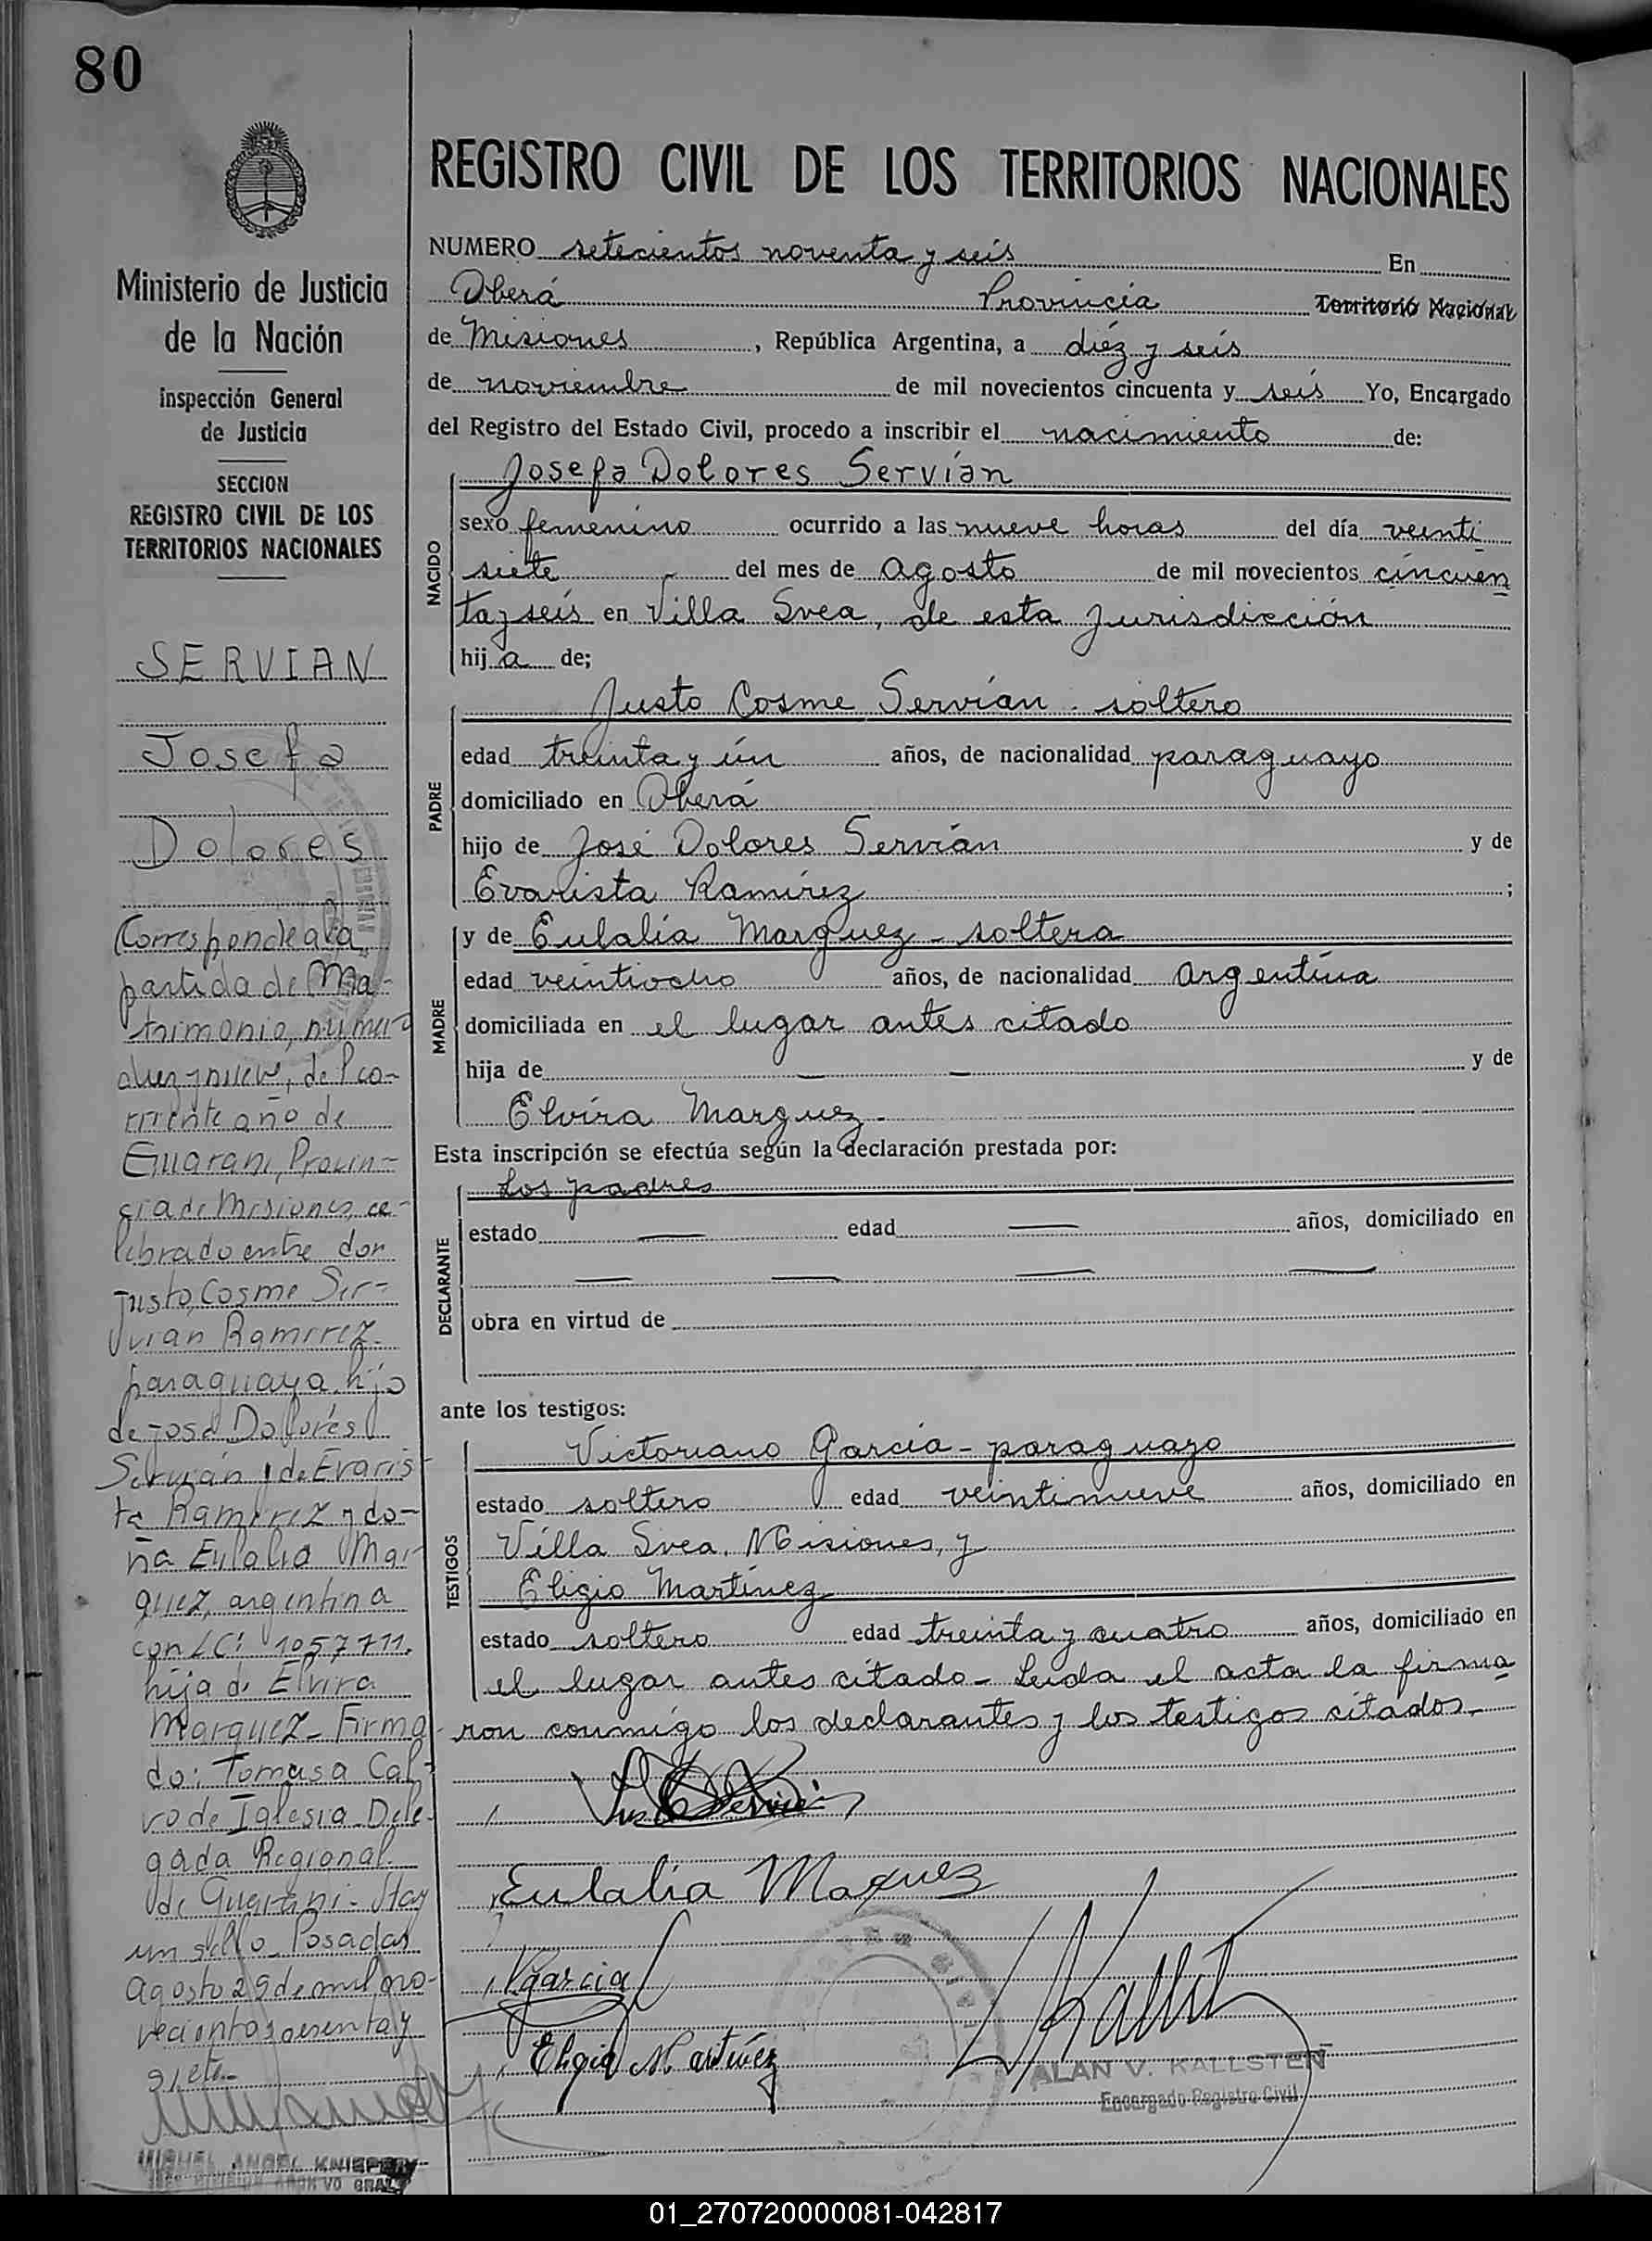 80
Ministerio de Justicia
de la Nación
Inspección General
de Justicia
SECCION
REGISTRO CIVIL DE LOS
TERRITORIOS NACIONALES
SERVIAN
Josefa
Dolores
Corresponde a la
partida de Ma-
trimonio, número
diez y nueve, del co-
rriente año de
Guarani, Provin-
cia de Misiones, ce-
lebrado entre don
Justo Cosme Ser-
vian Ramirez
paraguaya, hijo
de José Dolores
Servián y de Evaris
ta Ramirez y do-
ña Eulalia Mar
quez, argentina
con LC: 1057711.
hija de Elvira
Marquez - Firma
do: Tomasa Cal-
vo de Iglesia Dele-
gada Regional
de Guarani - Hay
un sello - Posadas
agosto 29 de mil no-
vecientos sesenta y
siete.-
MIGUEL ANGEL
REGISTRO CIVIL DE LOS TERRITORIOS NACIONALES
NUMERO setecientos noventa y seis En
Oberá Provincia Territorio Nacional
de Misiones, República Argentina, a diéz y seis
de noviembre de mil novecientos cincuenta y seis Yo, Encargado
del Registro del Estado Civil, procedo a inscribir el nacimiento de:
Josefa Dolores Servían
NACIDO
sexo femenino ocurrido a las nueve horas del día veinti
siete del mes de agosto de mil novecientos cincuen
ta y seis en Villa Svea, de esta Jurisdicción
hij a de;
Justo Cosme Servían - soltero
PADRE
edad treinta y ún años, de nacionalidad paraguayo
domiciliado en Oberá
hijo de José Dolores Servián y de
Evarista Ramírez ;
y de Eulalia Marquez - soltera
MADRE
edad veintiocho años, de nacionalidad argentina
domiciliada en el lugar antes citado
hija de — — y de
Elvira Marquez -
Esta inscripción se efectúa según la declaración prestada por:
Los padres
DECLARANTE
estado — edad — años, domiciliado en
— — — —
obra en virtud de
ante los testigos:
Victoriano García - paraguayo
TESTIGOS
estado soltero edad veintinueve años, domiciliado en
Villa Svea, Misiones, y
Eligio Martínez
estado soltero edad treinta y cuatro años, domiciliado en
el lugar antes citado - Leida el acta la firma
ron conmigo los declarantes y los testigos citados.-
Eulalia Maquez
Vgarcia
Eligio Martínez
ALAN V. KALLSTEN
Encargado Registro Civil
01_270720000081-042817